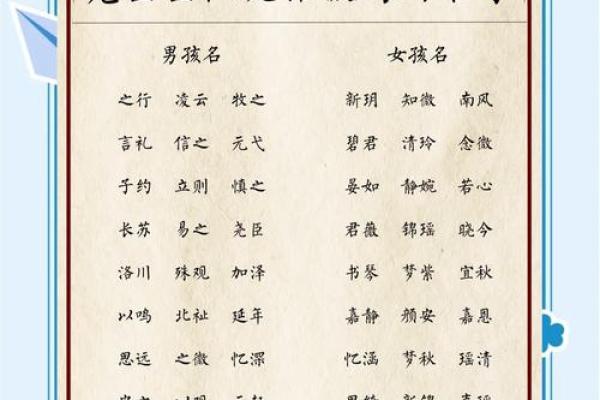 男孩名 女孩名
之行 凌云 牧之 新玥 知微 南风
言礼 信之 元弋 碧君 清玲 念微
子约 立则 慎之 晏如 静婉 若心
长苏 易之 尧臣 君薇 锦瑶 晓今
洛川 殊观 加泽 书琴 梦紫 宜秋
以鸣 北祉 延年 嘉静 颜安 嘉恩
思远 之微 忆深 忆涵 梦秋 瑶清